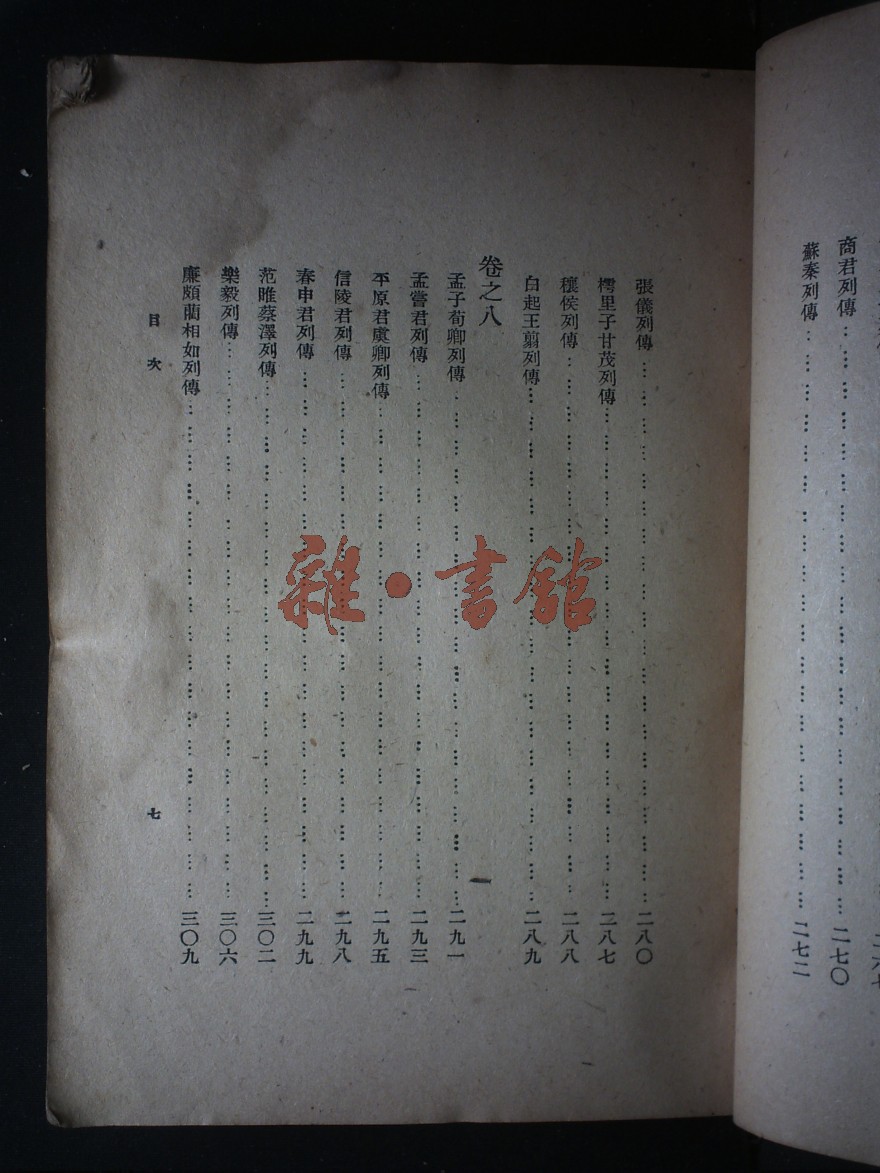 商君列傳 二七〇
蘇秦列傳 二七二
張儀列傳 二八〇
樗里子甘茂列傳 二八七
穰侯列傳 二八八
白起王翦列傳 二八九
卷之八
孟子荀卿列傳 二九一
孟嘗君列傳 二九三
平原君虞卿列傳 二九五
信陵君列傳 二九八
春申君列傳 二九九
范睢蔡澤列傳 三〇二
樂毅列傳 三〇六
廉頗藺相如列傳 三〇九
目次 七
雜·書館